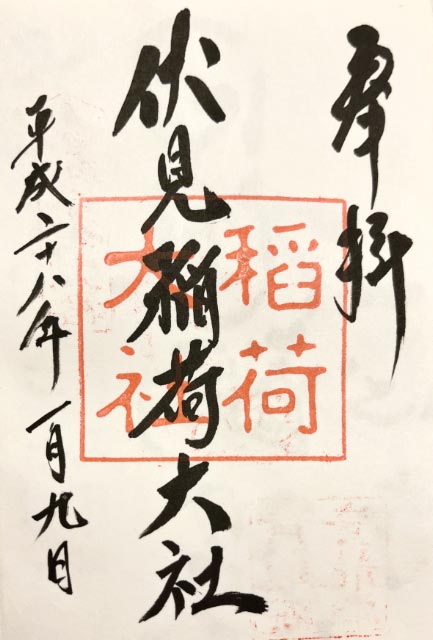 奉拝
伏見稲荷大社
稲荷
大社
平成二十八年一月九日